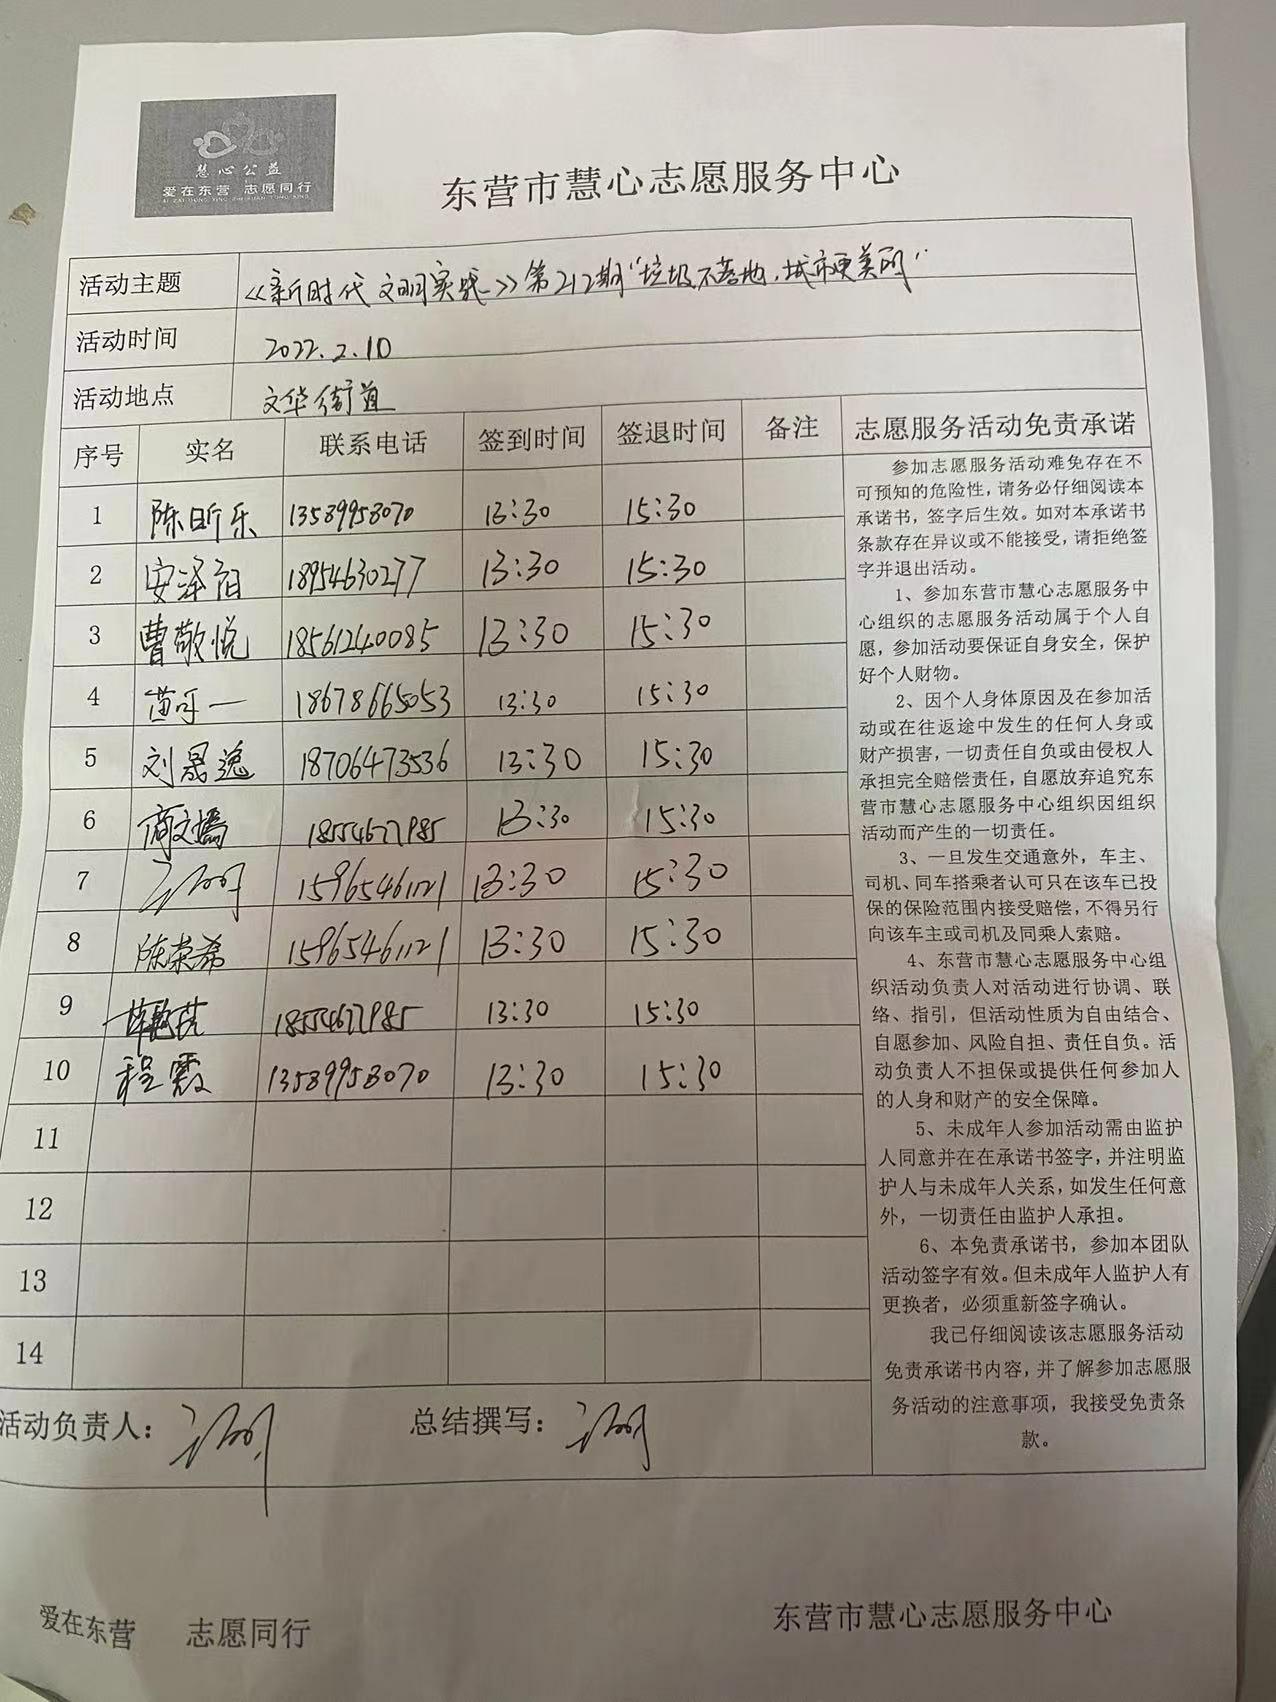 慧心公益
爱在东营 志愿同行
AI ZAI DONG YING ZHI YUAN TONG XING
东营市慧心志愿服务中心
活动主题 《新时代文明实践》第212期“垃圾不落地，城市更美丽”
活动时间 2022.2.10
活动地点 文华街道
序号 实名 联系电话 签到时间 签退时间 备注 志愿服务活动免责承诺
1 陈昕乐 13589958070 13:30 15:30
2 安泽伯 18954630277 13:30 15:30
3 曹敬悦 18561240085 13:30 15:30
4 苗可一 18678665053 13:30 15:30
5 刘晟逸 18706473536 13:30 15:30
6 商文嫣 18554677985 13:30 15:30
7 15965461121 13:30 15:30
8 陈荣希 15965461121 13:30 15:30
9 18554677985 13:30 15:30
10 程霞 13589958070 13:30 15:30
11
12
13
14
参加志愿服务活动难免存在不
可预知的危险性，请务必仔细阅读本
承诺书，签字后生效。如对本承诺书
条款存在异议或不能接受，请拒绝签
字并退出活动。
1、参加东营市慧心志愿服务中
心组织的志愿服务活动属于个人自
愿，参加活动要保证自身安全，保护
好个人财物。
2、因个人身体原因及在参加活
动或在往返途中发生的任何人身或
财产损害，一切责任自负或由侵权人
承担完全赔偿责任，自愿放弃追究东
营市慧心志愿服务中心组织因组织
活动而产生的一切责任。
3、一旦发生交通意外，车主、
司机、同车搭乘者认可只在该车已投
保的保险范围内接受赔偿，不得另行
向该车主或司机及同乘人索赔。
4、东营市慧心志愿服务中心组
织活动负责人对活动进行协调、联
络、指引，但活动性质为自由结合、
自愿参加、风险自担、责任自负。活
动负责人不担保或提供任何参加人
的人身和财产的安全保障。
5、未成年人参加活动需由监护
人同意并在在承诺书签字，并注明监
护人与未成年人关系，如发生任何意
外，一切责任由监护人承担。
6、本免责承诺书，参加本团队
活动签字有效。但未成年人监护人有
更换者，必须重新签字确认。
我已仔细阅读该志愿服务活动
免责承诺书内容，并了解参加志愿服
务活动的注意事项，我接受免责条
款。
活动负责人： 总结撰写：
爱在东营 志愿同行 东营市慧心志愿服务中心